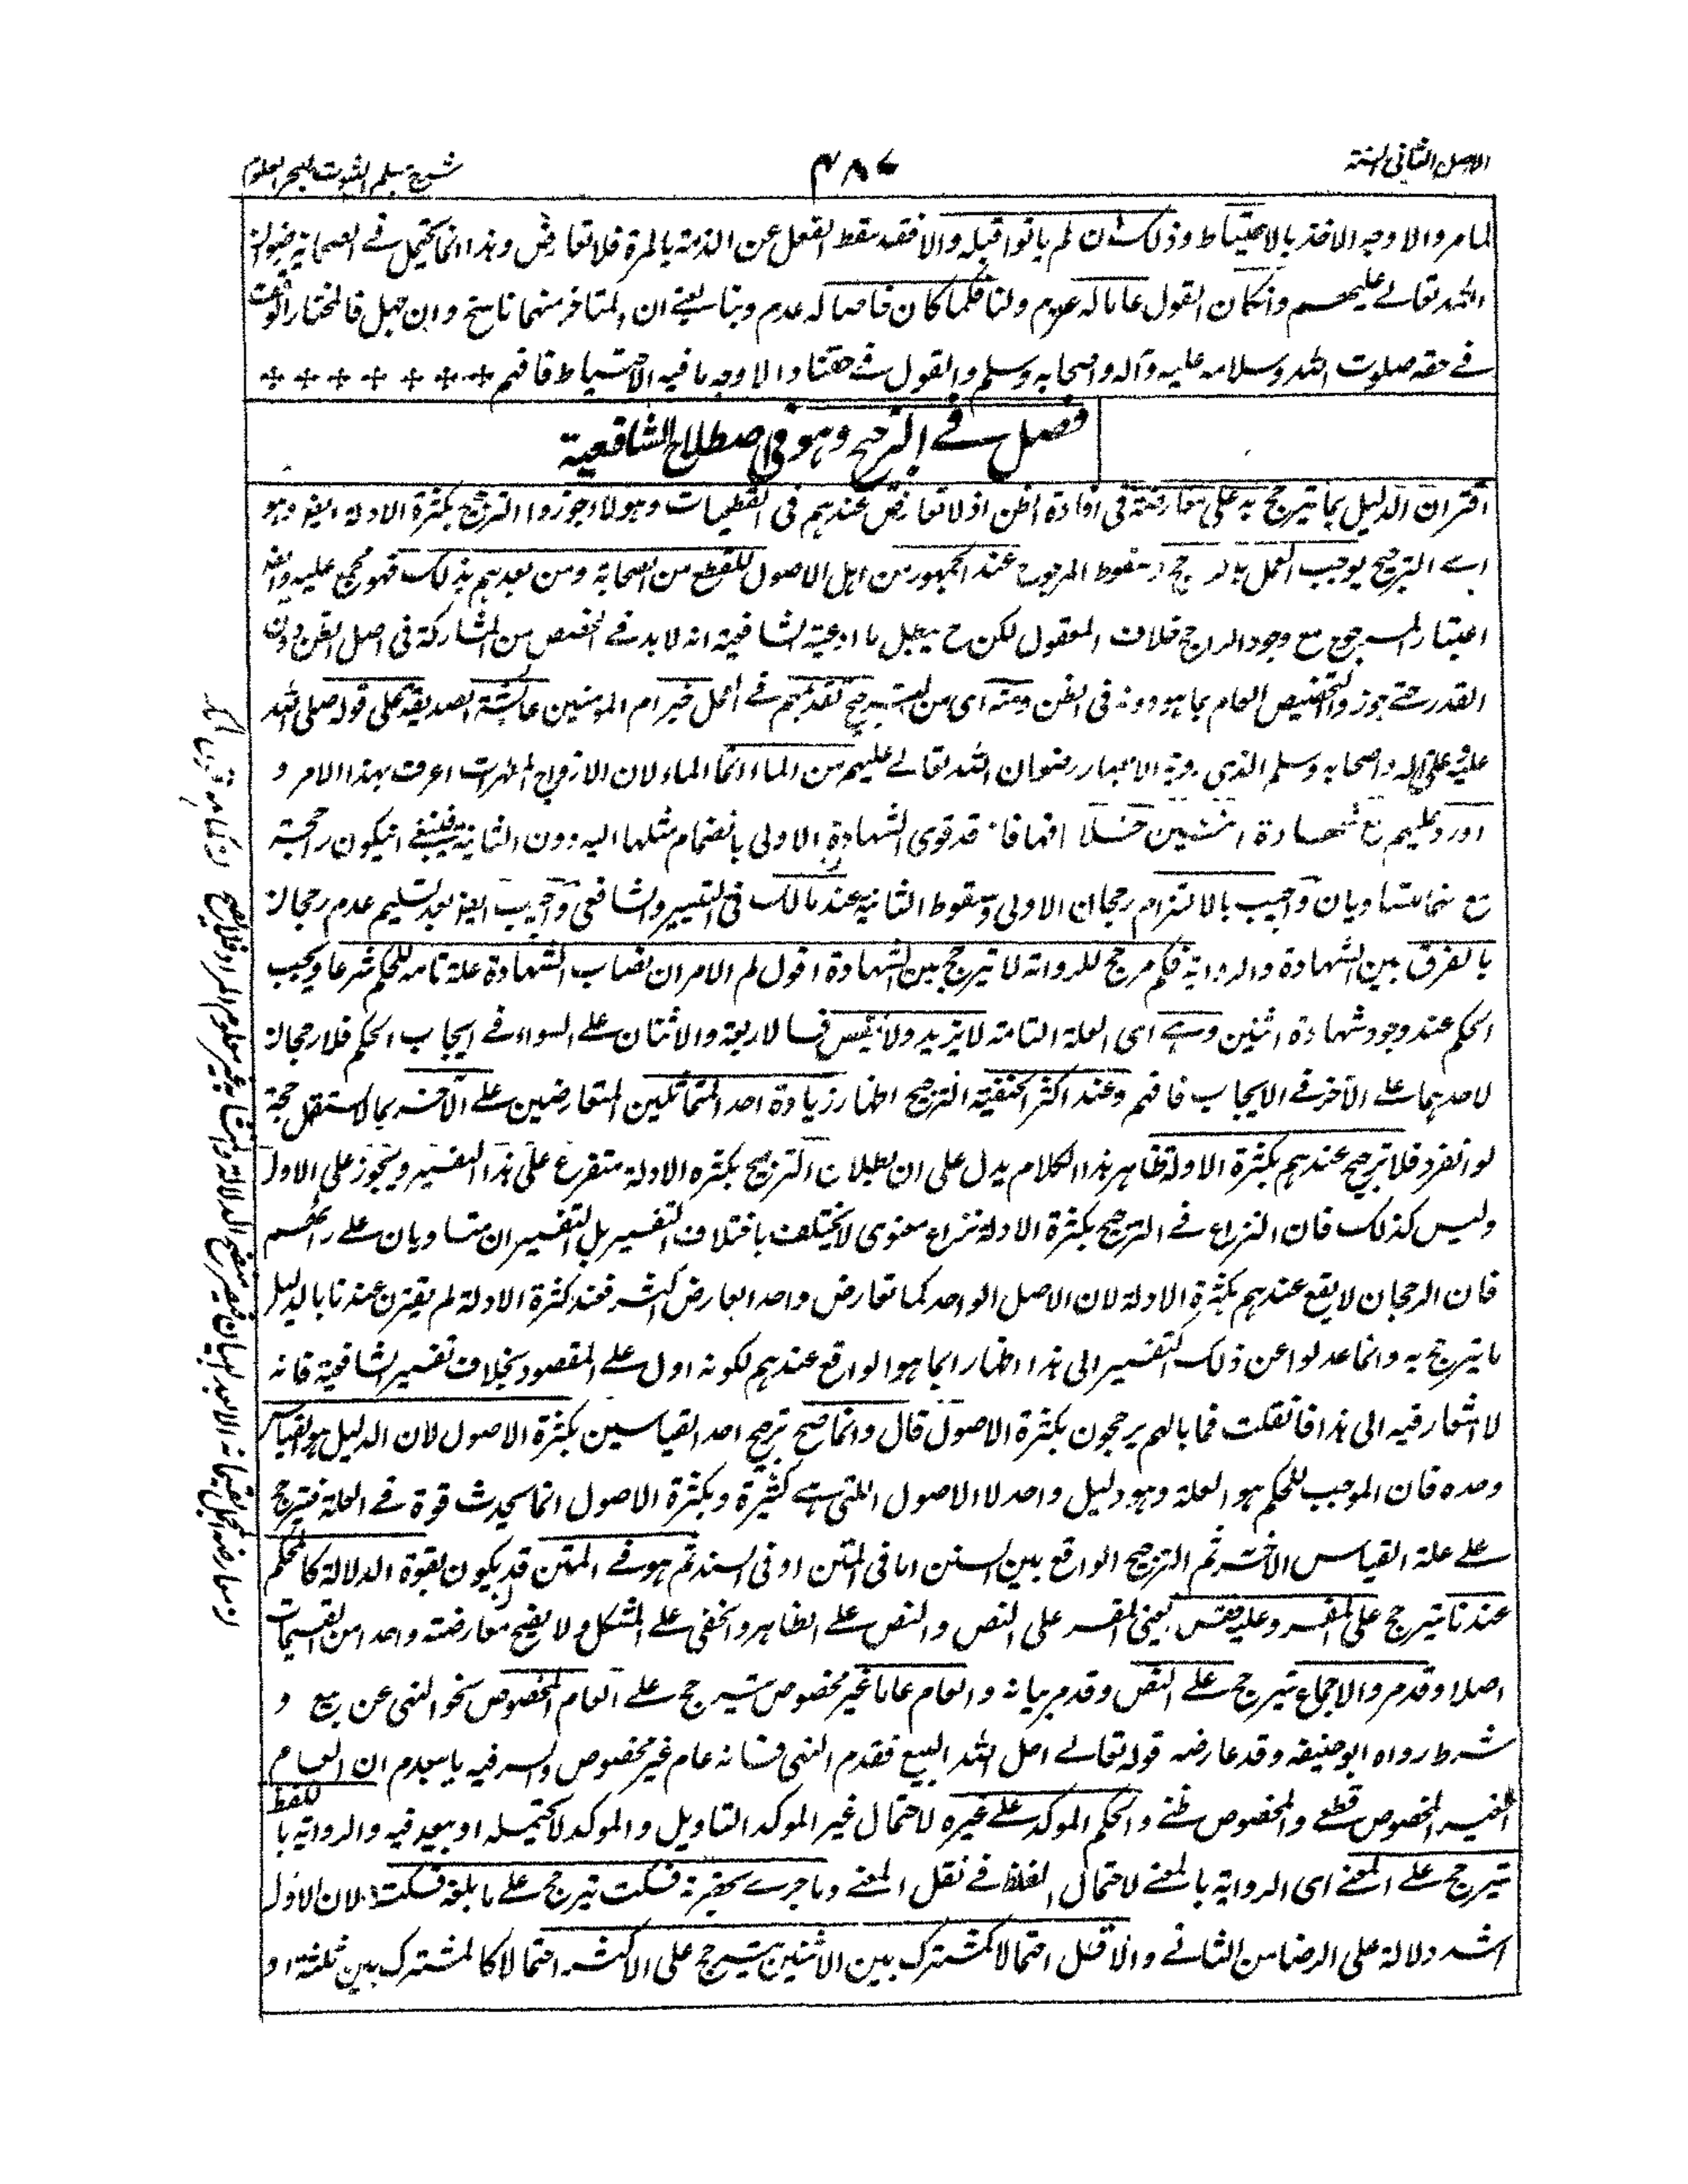 الاصل الثاني السنة
٤٨٧
شرح مسلم الثبوت لبحر العلوم
لما مر والاوجه الاخذ بالاحتياط وذلك ان لم ياتوا قبله والا فقد سقط الفعل عن الذمة بالمرة فلا تعارض وهذا انما يحتمل في الصحابة رضوان
الله تعالى عليهم وان كان القول عاما له عموم ولنا فكما كان خاصا له عدم وبنا يعني ان المتاخر منهما ناسخ وان جهل فالمختار الوقف
في حقه صلوت الله وسلامه عليه وآله واصحابه وسلم والقول في حقنا والاوجه ما فيه الاحتياط فافهم
فصل في الترجيح وهو في اصطلاح الشافعية
اقتران الدليل بما يترجح به على معارضته في افادة الظن اذ لا تعارض عندهم في القطعيات وهولاء جوزوا الترجيح بكثرة الادلة ايضا وهو
اى الترجيح يوجب العمل بالراجح وسقوط المرجوح عند الجمهور من اهل الاصول للقطع من الصحابة ومن بعدهم بذلك فهو مجمع عليه وايضا
اعتبار المرجوح مع وجود الراجح خلاف المعقول لكن ح يبطل ما ادعته الشافعية انه لا بد في المخصص من المشاركة في اصل الظن دون
القدر حتى جوزوا تخصيص العام بما هو دونه في الظن ومنه اى من الترجيح تقديمهم في العمل خبر ام المومنين عائشة الصديقة على قوله صلى الله
عليه وعلى آله واصحابه وسلم الذى روته الانصار رضوان الله تعالى عليهم من الماء انما الماء لان الازواج المطهرات اعرف بهذا الامر و
اورد عليهم شهادة اربعة مع شهادة اثنين فان قد قوى الشهادة الاولى بانضمام مثلها اليه دون الثانية فينبغي ان يكون راجحة
مع انهما متساويان واجيب بالالتزام رجحان الاولى وسقوط الثانية عند مالك في التيسير والشافعي واجيب ايضا بعد تسليم عدم رجحانه
بالفرق بين الشهادة والرواية فكم مرجح للرواية لا يترجح بين الشهادة اقول لم الامر ان نصاب الشهادة علة تامة للحكم شرعا ويجب
الحكم عند وجود شهادة اثنين وهى اى العلة التامة لا يزيد ولا ينقص فالاربعة والاثنان على السواء في ايجاب الحكم فلا رجحان
لاحدهما على الآخر في الايجاب فافهم وعند اكثر الحنفية الترجيح اظهار زيادة احد المتماثلين المتعارضين على الآخر بما لا يستقل حجة
لو انفرد فلا ترجيح عندهم بكثرة الادلة ظاهر هذا الكلام يدل على ان بطلان الترجيح بكثرة الادلة متفرع على هذا التفسير ويجوز على الاول
وليس كذلك فان النزاع في الترجيح بكثرة الادلة نزاع معنوى لا يختلف باختلاف التفسير بل التفسيران متساويان على رأيهم
فان الرجحان لا يقع عندهم بكثرة الادلة لان الاصل الواحد كما تعارض واحد العارض اكثر فعند كثرة الادلة لم يقترن عندنا بالدليل
ما يترجح به وانما عدلوا عن ذلك التفسير الى هذا اظهارا بما هو الواقع عندهم لكونه ادل على المقصود بخلاف تفسير الشافعية فانه
لا اشعار فيه الى هذا فان قلت فما بالهم يرجحون بكثرة الاصول قال وانما صح ترجيح احد القياسين بكثرة الاصول لان الدليل هو القياس
وحده فان الموجب للحكم هو العلة وهو دليل واحد لا الاصول اللتى هى كثيرة وبكثرة الاصول انما يحدث قوة في العلة فيترجح
على علة القياس الآخر ثم الترجيح الواقع بين السنن اما في المتن او في السند ثم هو في المتن قد يكون بقوة الدلالة كالمحكم
عندنا يترجح على المفسر وعليه فقس يعني المفسر على النص والنص على الظاهر والخفي على المشكل ولا يصح معارضته واحد من القسيمات
اصلا وقد مر والاجماع يترجح على النص وقد مر بيانه والعام عاما غير مخصوص يترجح على العام المخصوص نحو النهى عن بيع و
شرط رواه ابو حنيفة وقد عارضه قوله تعالى احل الله البيع فقدم النهى فانه عام غير مخصوص والسر فيه ما تقدم ان العام
الغير المخصوص قطعى والمخصوص ظنى والحكم الموكد على غيره لاحتمال غير الموكد التاويل والموكد لا يحتمله او بعيد فيه والرواية باللفظ
يترجح على المعنى اى الرواية بالمعنى لاحتمال الغلط في نقل المعنى وما جرى بحضرته فسكت يترجح على ما بلغه فسكت لان الاول
اشد دلالة على الرضا من الثاني والاقل احتمالا كمشترك بين الاثنين يترجح على الاكثر احتمالا كالمشترك بين ثلثة او